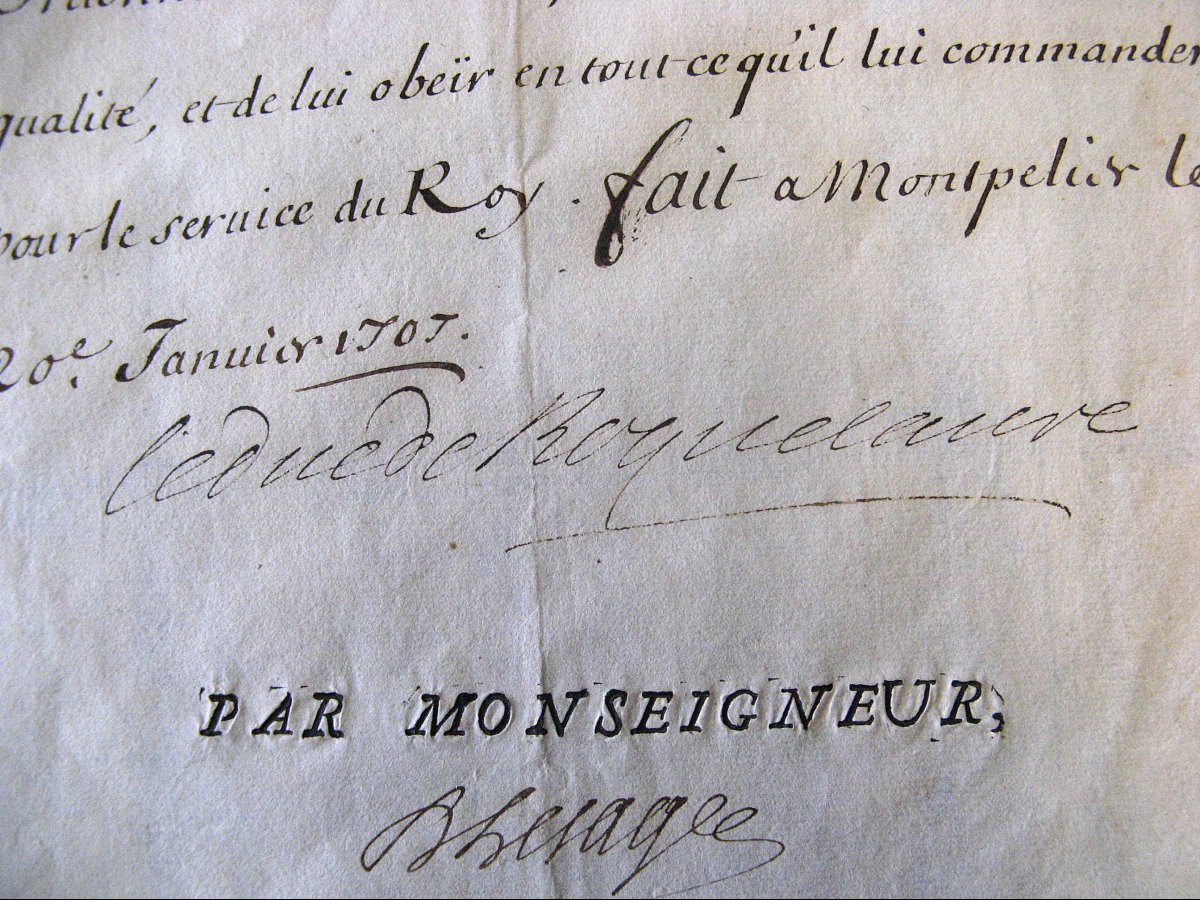 qualité, et de lui obeïr en tout ce qu'il lui commander
pour le service du Roy. fait a Montpelier le
20e. Janvier 1707.
le duc de Roquelaure
PAR MONSEIGNEUR,